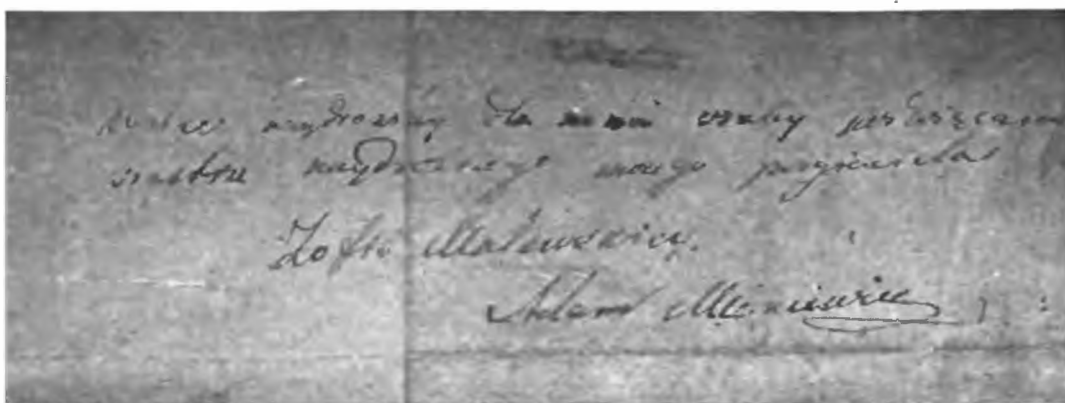 naydroższey dla mnie osoby poświęcam
siostrze naydroższego moiego przyjaciela
Zofii Malewskiey.
Adam Mickiewicz